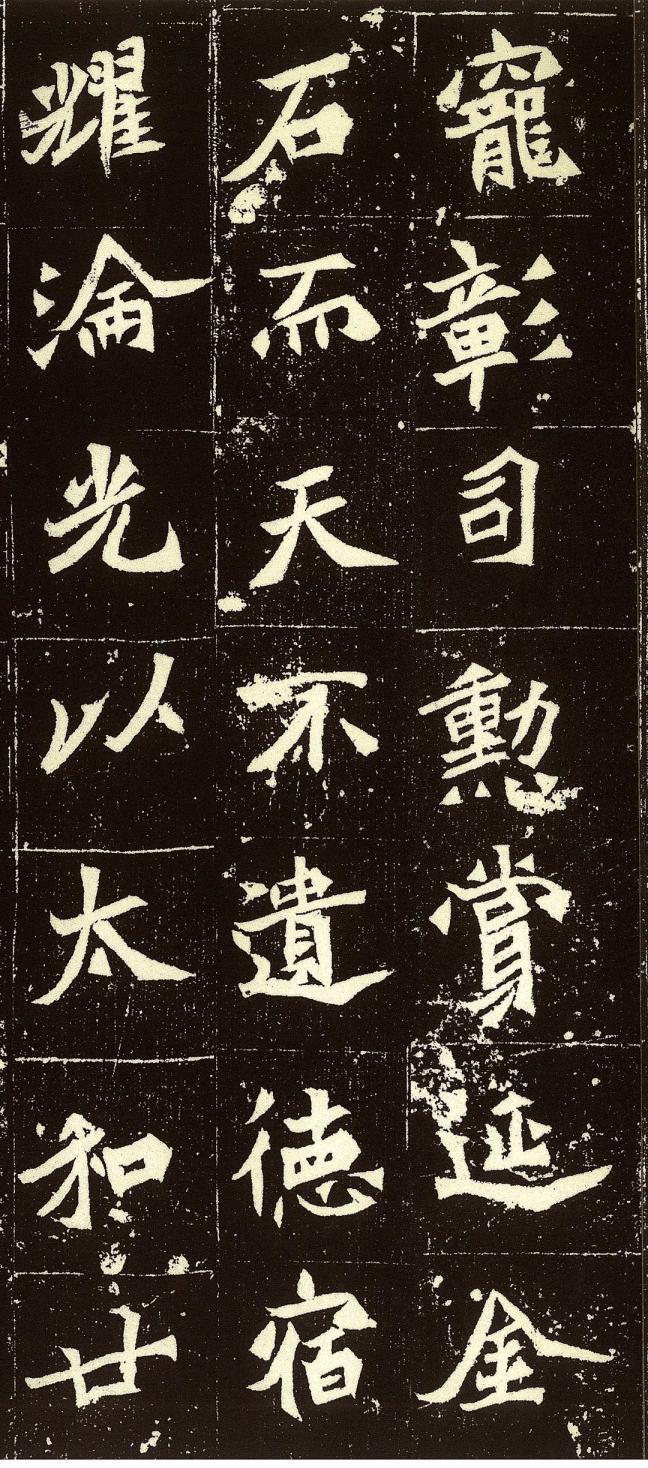 寵彰司勳賞延金
石而天不遺德宿
耀淪光以太和廿